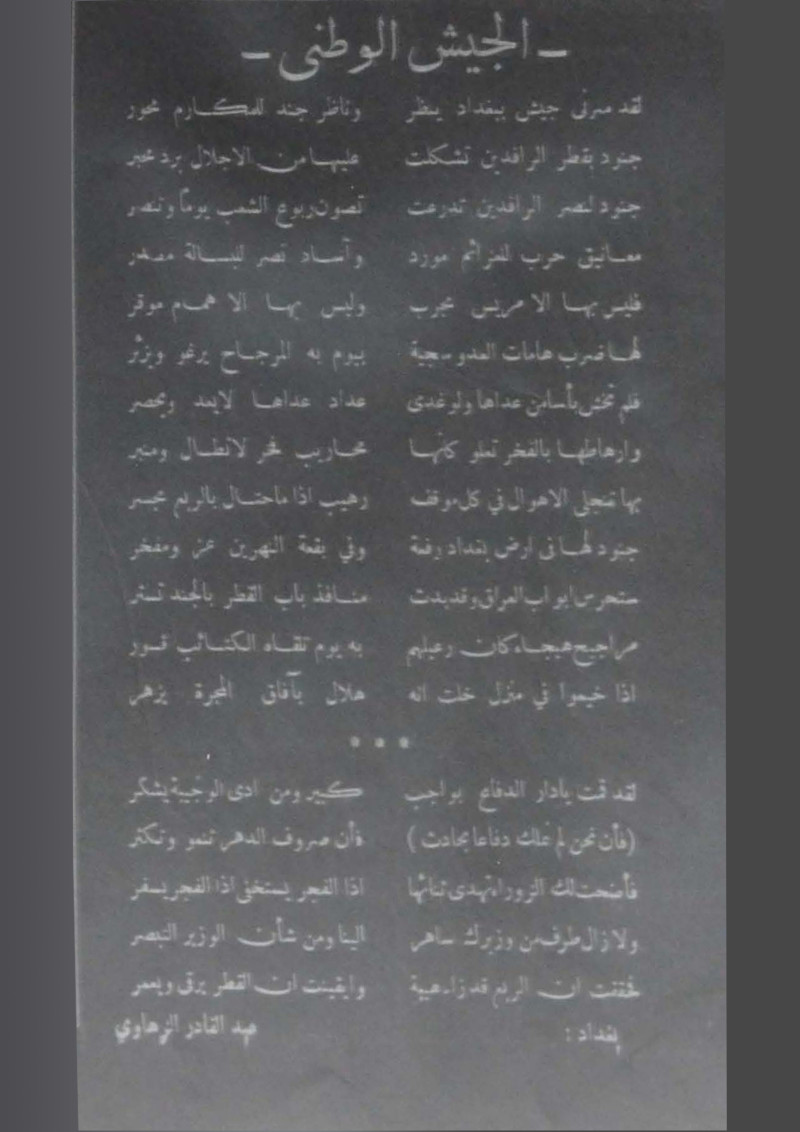 ـ الجيش الوطني ـ
لقد سرني جيش ببغداد ينظر وناظر جند للمكارم محور
جنود بقطر الرافدين تشكلت عليها من الاجلال برد محبر
جنود لنصر الرافدين تدرعت تصون ربوع الشعب يوماً وتنصر
معانيق حرب للعزائم مورد وآساد نصر للبسالة مصدر
فليس بها الا مريس مجرب وليس بها الا همام موقر
لها ضرب هامات العدو سجية بيوم به المرجاح يرغو ويزئر
فلم تخش بأسا من عداها ولو غدى عداد عداها لا يعد ويحصر
وارهاطها بالفخر تعلو كأنها محاريب فخر لا تطال ومنبر
بها تنجلي الاهوال في كل موقف رهيب اذا ما حتال بالريم
جنود لها في ارض بغداد رفعة وفي بقعة النهرين عز ومفخر
ستحرس ابواب العراق وقد بدت منافذ باب القطر بالجند تستر
مراجيح هيجاء كان رعيلهم به يوم تلقاه الكتائب قسور
اذا خيموا في منزل خلت انه هلال بآفاق المجرة يزهر
* * *
لقد قمت يادار الدفاع بواجب كبير ومن ادى الوجيبة يشكر
(فأن نحن لم نملك دفاعا بحادث) فأن صروف الدهر تنمو وتكثر
فأضحت لك الزوراء تهدي ثنائها اذا الفجر يستخفى اذا الفجر يسفر
ولا زال طرف من وزيرك ساهر الينا ومن شأن الوزير التبصر
فخفت ان الريم قد زاد هيبة وايقينت ان القطر يرقى ويعمر
بغداد : عبد القادر الزهاوي